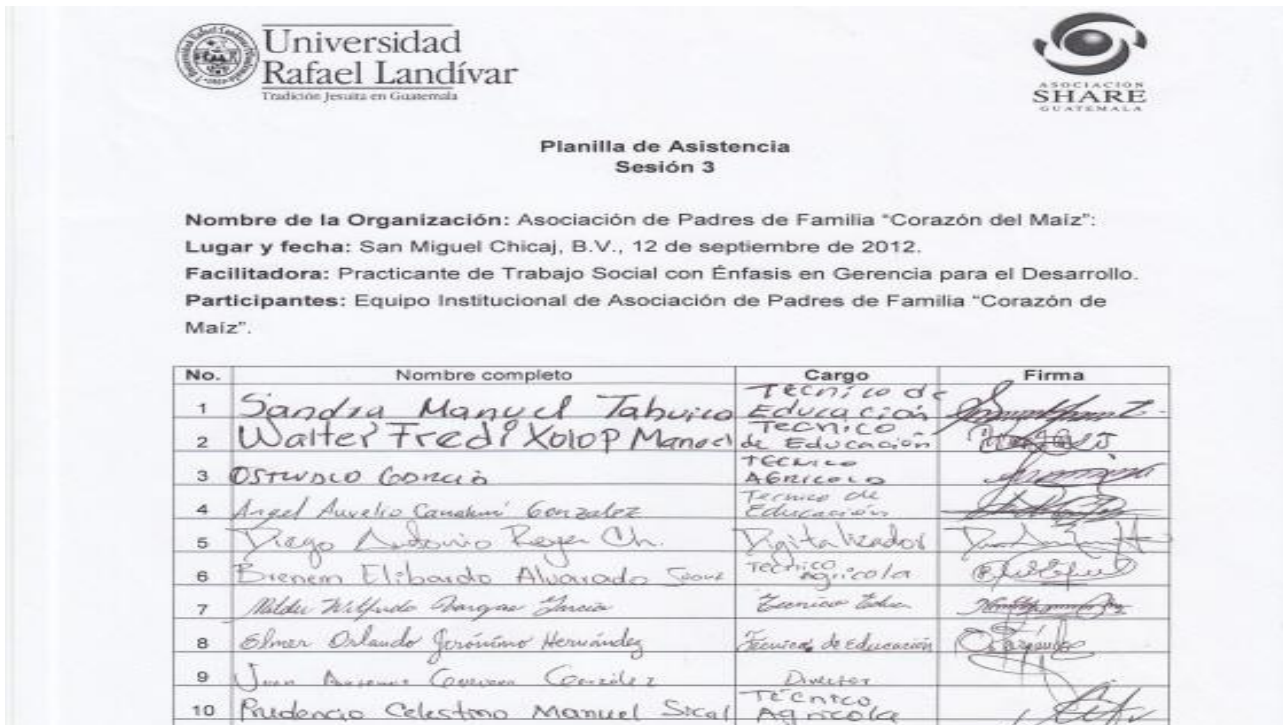 Universidad
Rafael Landívar
Tradición Jesuita en Guatemala
ASOCIACIÓN
SHARE
GUATEMALA
Planilla de Asistencia
Sesión 3
Nombre de la Organización: Asociación de Padres de Familia “Corazón del Maíz”:
Lugar y fecha: San Miguel Chicaj, B.V., 12 de septiembre de 2012.
Facilitadora: Practicante de Trabajo Social con Énfasis en Gerencia para el Desarrollo.
Participantes: Equipo Institucional de Asociación de Padres de Familia “Corazón de
Maíz”.
No. Nombre completo Cargo Firma
1 Sandra Manuel Tecnico de Educación
2 Walter Fredi Xolop Manuel Tecnico de Educación
3 García TECNICO AGRICOLA
4 Angel Aurelio Gonzalez Tecnico de Educación
5 Diego Antonio Reyes Ch. Digitalizador
6 Elibardo Alvarado Tecnico Agricola
7 Wilfredo Vargas García Tecnico
8 Elmer Orlando Jerónimo Hernández Tecnico de Educación
9 Juan González Director
10 Prudencio Celestino Manuel Sical Técnico Agricola